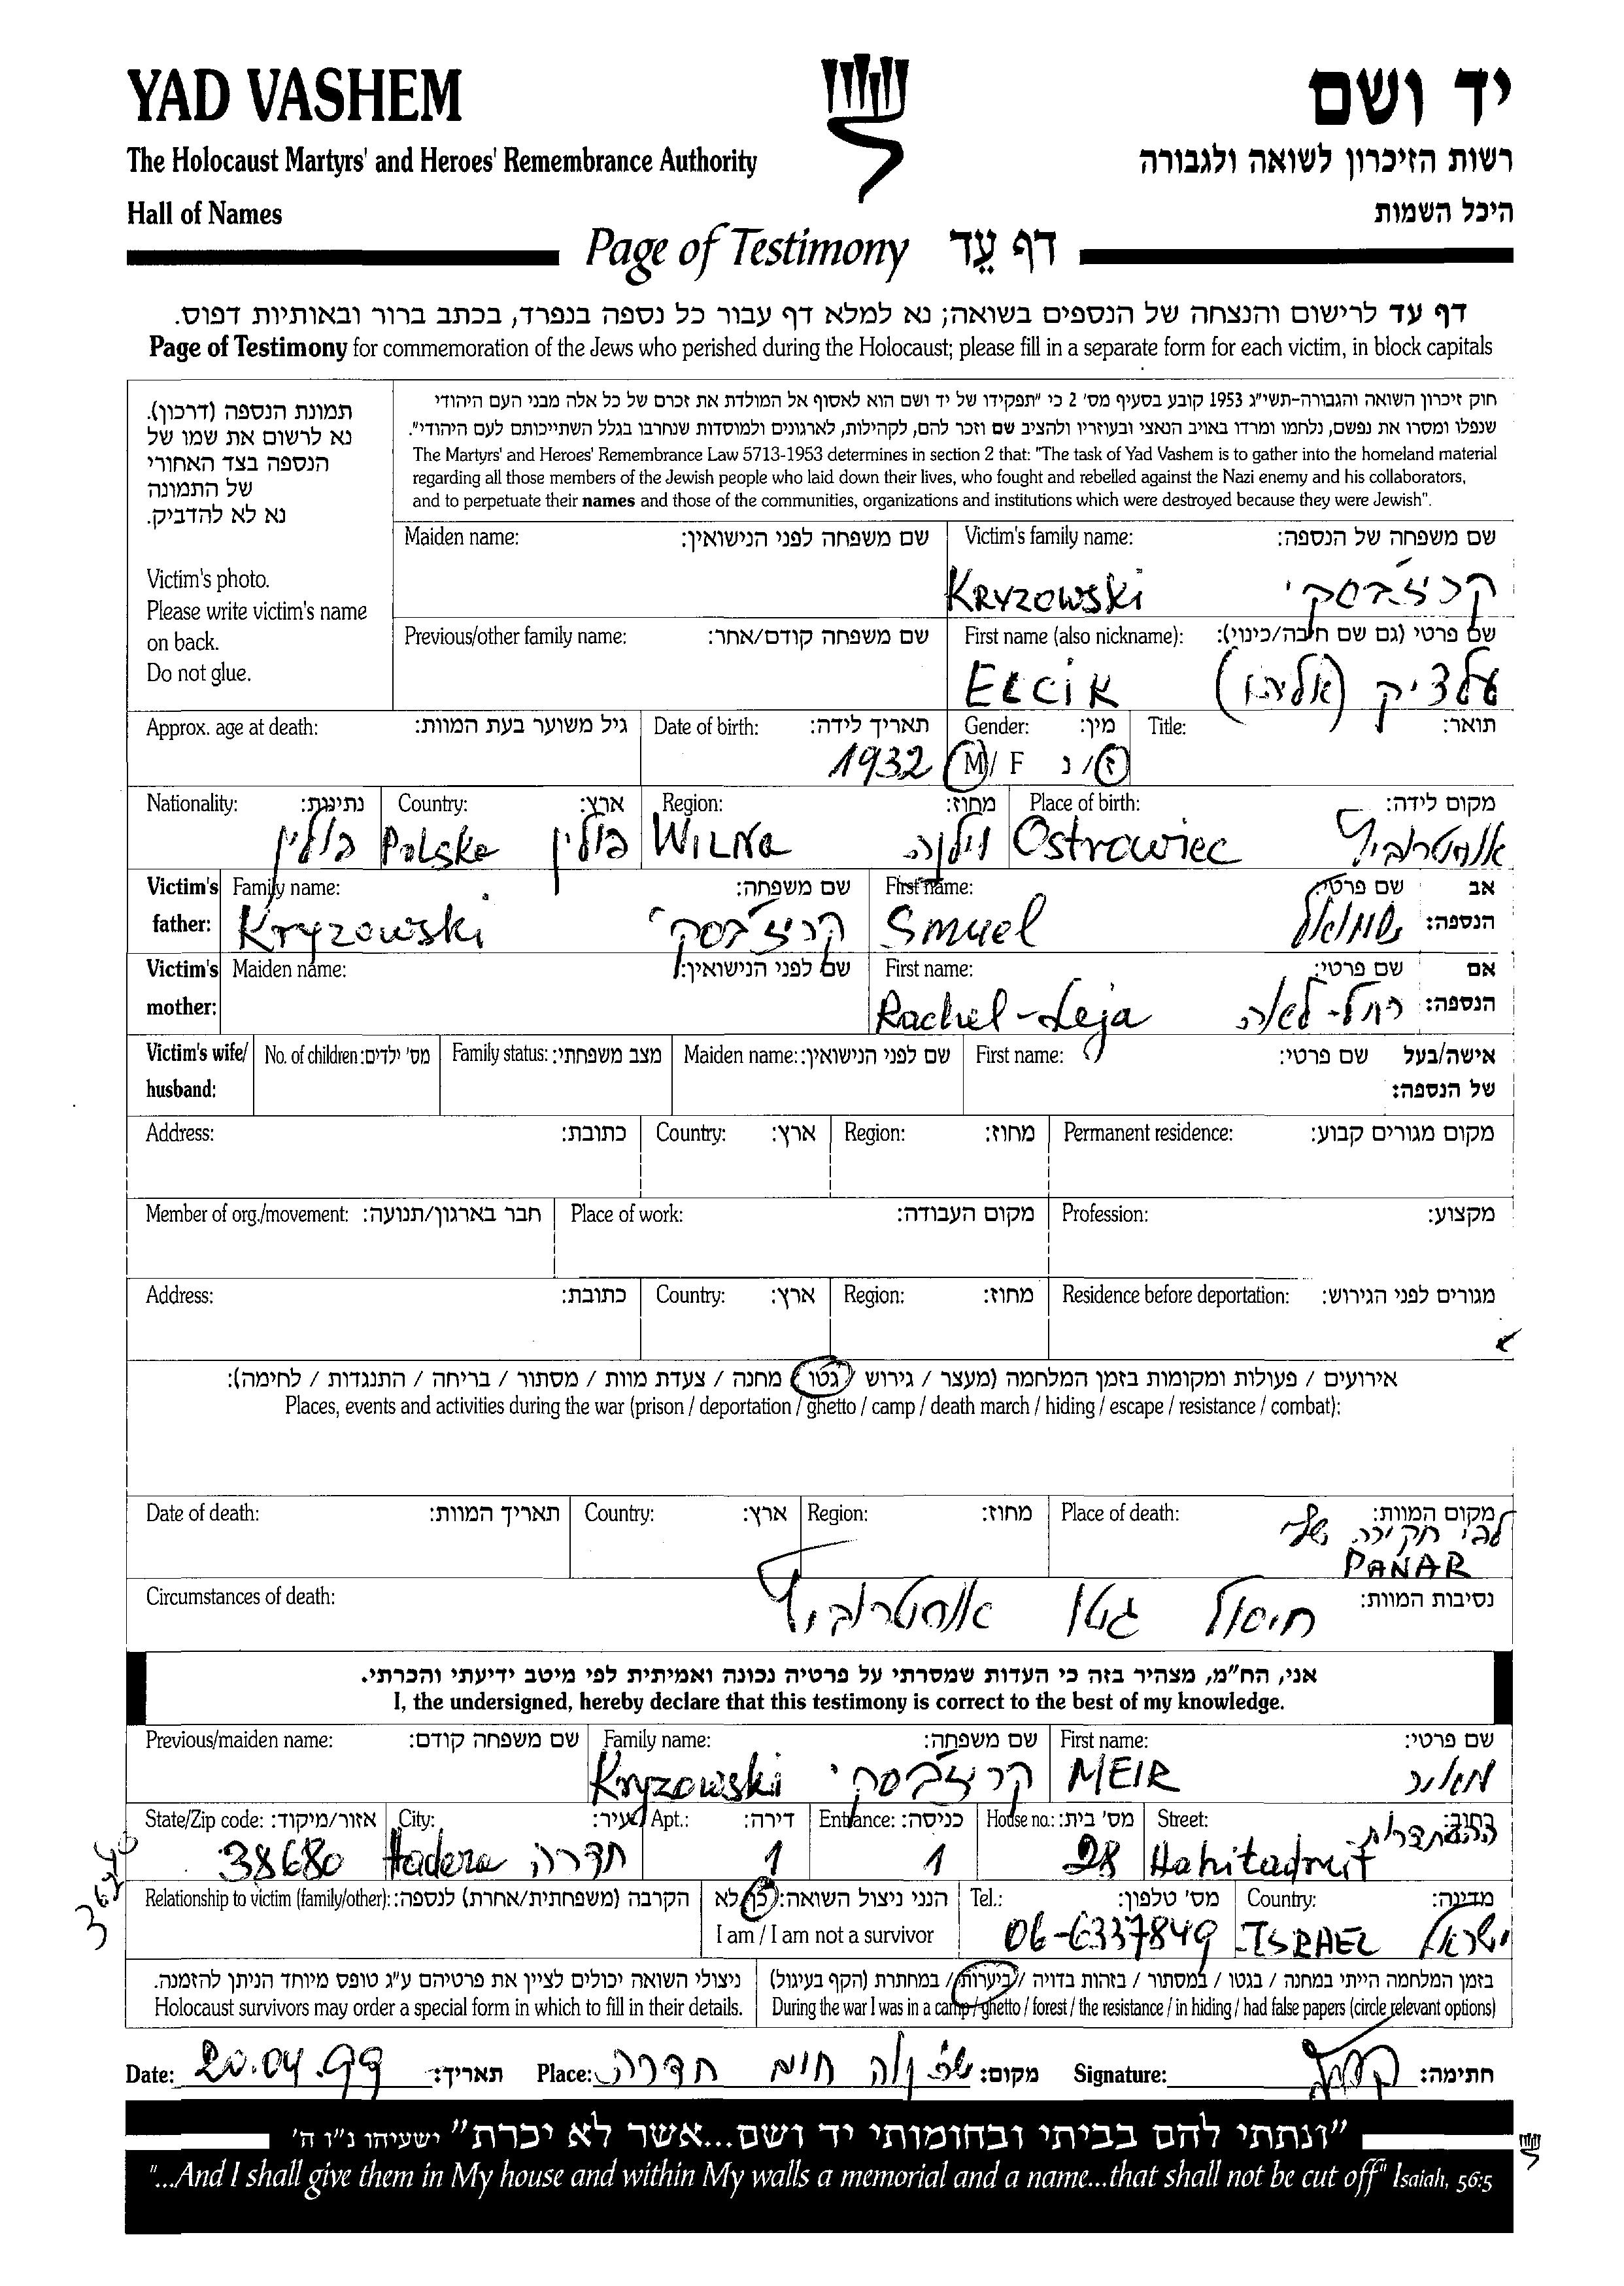 YAD VASHEM
יד ושם
The Holocaust Martyrs' and Heroes' Remembrance Authority
רשות הזיכרון לשואה ולגבורה
Hall of Names
היכל השמות
Page of Testimony דף עֵד
דף עד לרישום והנצחה של הנספים בשואה; נא למלא דף עבור כל נספה בנפרד, בכתב ברור ובאותיות דפוס.
Page of Testimony for commemoration of the Jews who perished during the Holocaust; please fill in a separate form for each victim, in block capitals
תמונת הנספה (דרכון).
נא לרשום את שמו של
הנספה בצד האחורי
של התמונה
נא לא להדביק.
Victim's photo.
Please write victim's name
on back.
Do not glue.
חוק זיכרון השואה והגבורה-תשי"ג 1953 קובע בסעיף מס' 2 כי "תפקידו של יד ושם הוא לאסוף אל המולדת את זכרם של כל אלה מבני העם היהודי
שנפלו ומסרו את נפשם, נלחמו ומרדו באויב הנאצי ובעוזריו ולהציב שם וזכר להם, לקהילות, לארגונים ולמוסדות שנחרבו בגלל השתייכותם לעם היהודי".
The Martyrs' and Heroes' Remembrance Law 5713-1953 determines in section 2 that: "The task of Yad Vashem is to gather into the homeland material
regarding all those members of the Jewish people who laid down their lives, who fought and rebelled against the Nazi enemy and his collaborators,
and to perpetuate their names and those of the communities, organizations and institutions which were destroyed because they were Jewish".
Maiden name: שם משפחה לפני הנישואין:
Victim's family name: שם משפחה של הנספה:
Kryzowski קריז'בסקי
Previous/other family name: שם משפחה קודם/אחר:
First name (also nickname): שם פרטי (גם שם חיבה/כינוי):
ELCIK עלציק (אליהו)
Approx. age at death: גיל משוער בעת המוות:
Date of birth: תאריך לידה:
1932
Gender: מין:
M/ F ז/ נ
Title: תואר:
Nationality: נתינות:
פולין
Country: ארץ:
Polska פולין
Region: מחוז:
WILNA וילנה
Place of birth: מקום לידה:
Ostrowiec אוסטרוביץ
Victim's father: אב הנספה:
Family name: שם משפחה:
Kryzowski קריז'בסקי
First name: שם פרטי:
Smuel שמואל
Victim's mother: אם הנספה:
Maiden name: שם לפני הנישואין:
First name: שם פרטי:
Rachel-Leja רחל-לאה
Victim's wife/ husband: אישה/בעל של הנספה:
No. of children: מס' ילדים:
Family status: מצב משפחתי:
Maiden name: שם לפני הנישואין:
First name: שם פרטי:
Address: כתובת:
Country: ארץ:
Region: מחוז:
Permanent residence: מקום מגורים קבוע:
Member of org./movement: חבר בארגון/תנועה:
Place of work: מקום העבודה:
Profession: מקצוע:
Address: כתובת:
Country: ארץ:
Region: מחוז:
Residence before deportation: מגורים לפני הגירוש:
אירועים / פעולות ומקומות בזמן המלחמה (מעצר / גירוש / גטו / מחנה / צעדת מוות / מסתור / בריחה / התנגדות / לחימה):
Places, events and activities during the war (prison / deportation / ghetto / camp / death march / hiding / escape / resistance / combat):
Date of death: תאריך המוות:
Country: ארץ:
Region: מחוז:
Place of death: מקום המוות:
לפי חקירה שלי
PANAR
Circumstances of death: נסיבות המוות:
חיסול גטו אוסטרוביץ
אני, הח"מ, מצהיר בזה כי העדות שמסרתי על פרטיה נכונה ואמיתית לפי מיטב ידיעתי והכרתי.
I, the undersigned, hereby declare that this testimony is correct to the best of my knowledge.
Previous/maiden name: שם משפחה קודם:
Family name: שם משפחה:
Kryzowski קריז'בסקי
First name: שם פרטי:
MEIR מאיר
State/Zip code: אזור/מיקוד:
38680
City: עיר:
Hadera חדרה
Apt.: דירה:
1
Entrance: כניסה:
1
House no.: מס' בית:
28
Street: רחוב:
Hahitadrut ההסתדרות
Relationship to victim (family/other): הקרבה (משפחתית/אחרת) לנספה:
הנני ניצול השואה: כן/לא
I am / I am not a survivor
Tel.: מס' טלפון:
06-6337849
Country: מדינה:
ISRAEL ישראל
ניצולי השואה יכולים לציין את פרטיהם ע"ג טופס מיוחד הניתן להזמנה.
Holocaust survivors may order a special form in which to fill in their details.
בזמן המלחמה הייתי במחנה / בגטו / במסתור / בזהות בדויה / ביערות / במחתרת (הקף בעיגול)
During the war I was in a camp / ghetto / forest / the resistance / in hiding / had false papers (circle relevant options)
Date: 20.04.99 תאריך:
Place: חדרה מקום:
Signature: חתימה:
"ונתתי להם בביתי ובחומותי יד ושם...אשר לא יכרת" ישעיהו נ"ו ה'
"...And I shall give them in My house and within My walls a memorial and a name...that shall not be cut off" Isaiah, 56:5